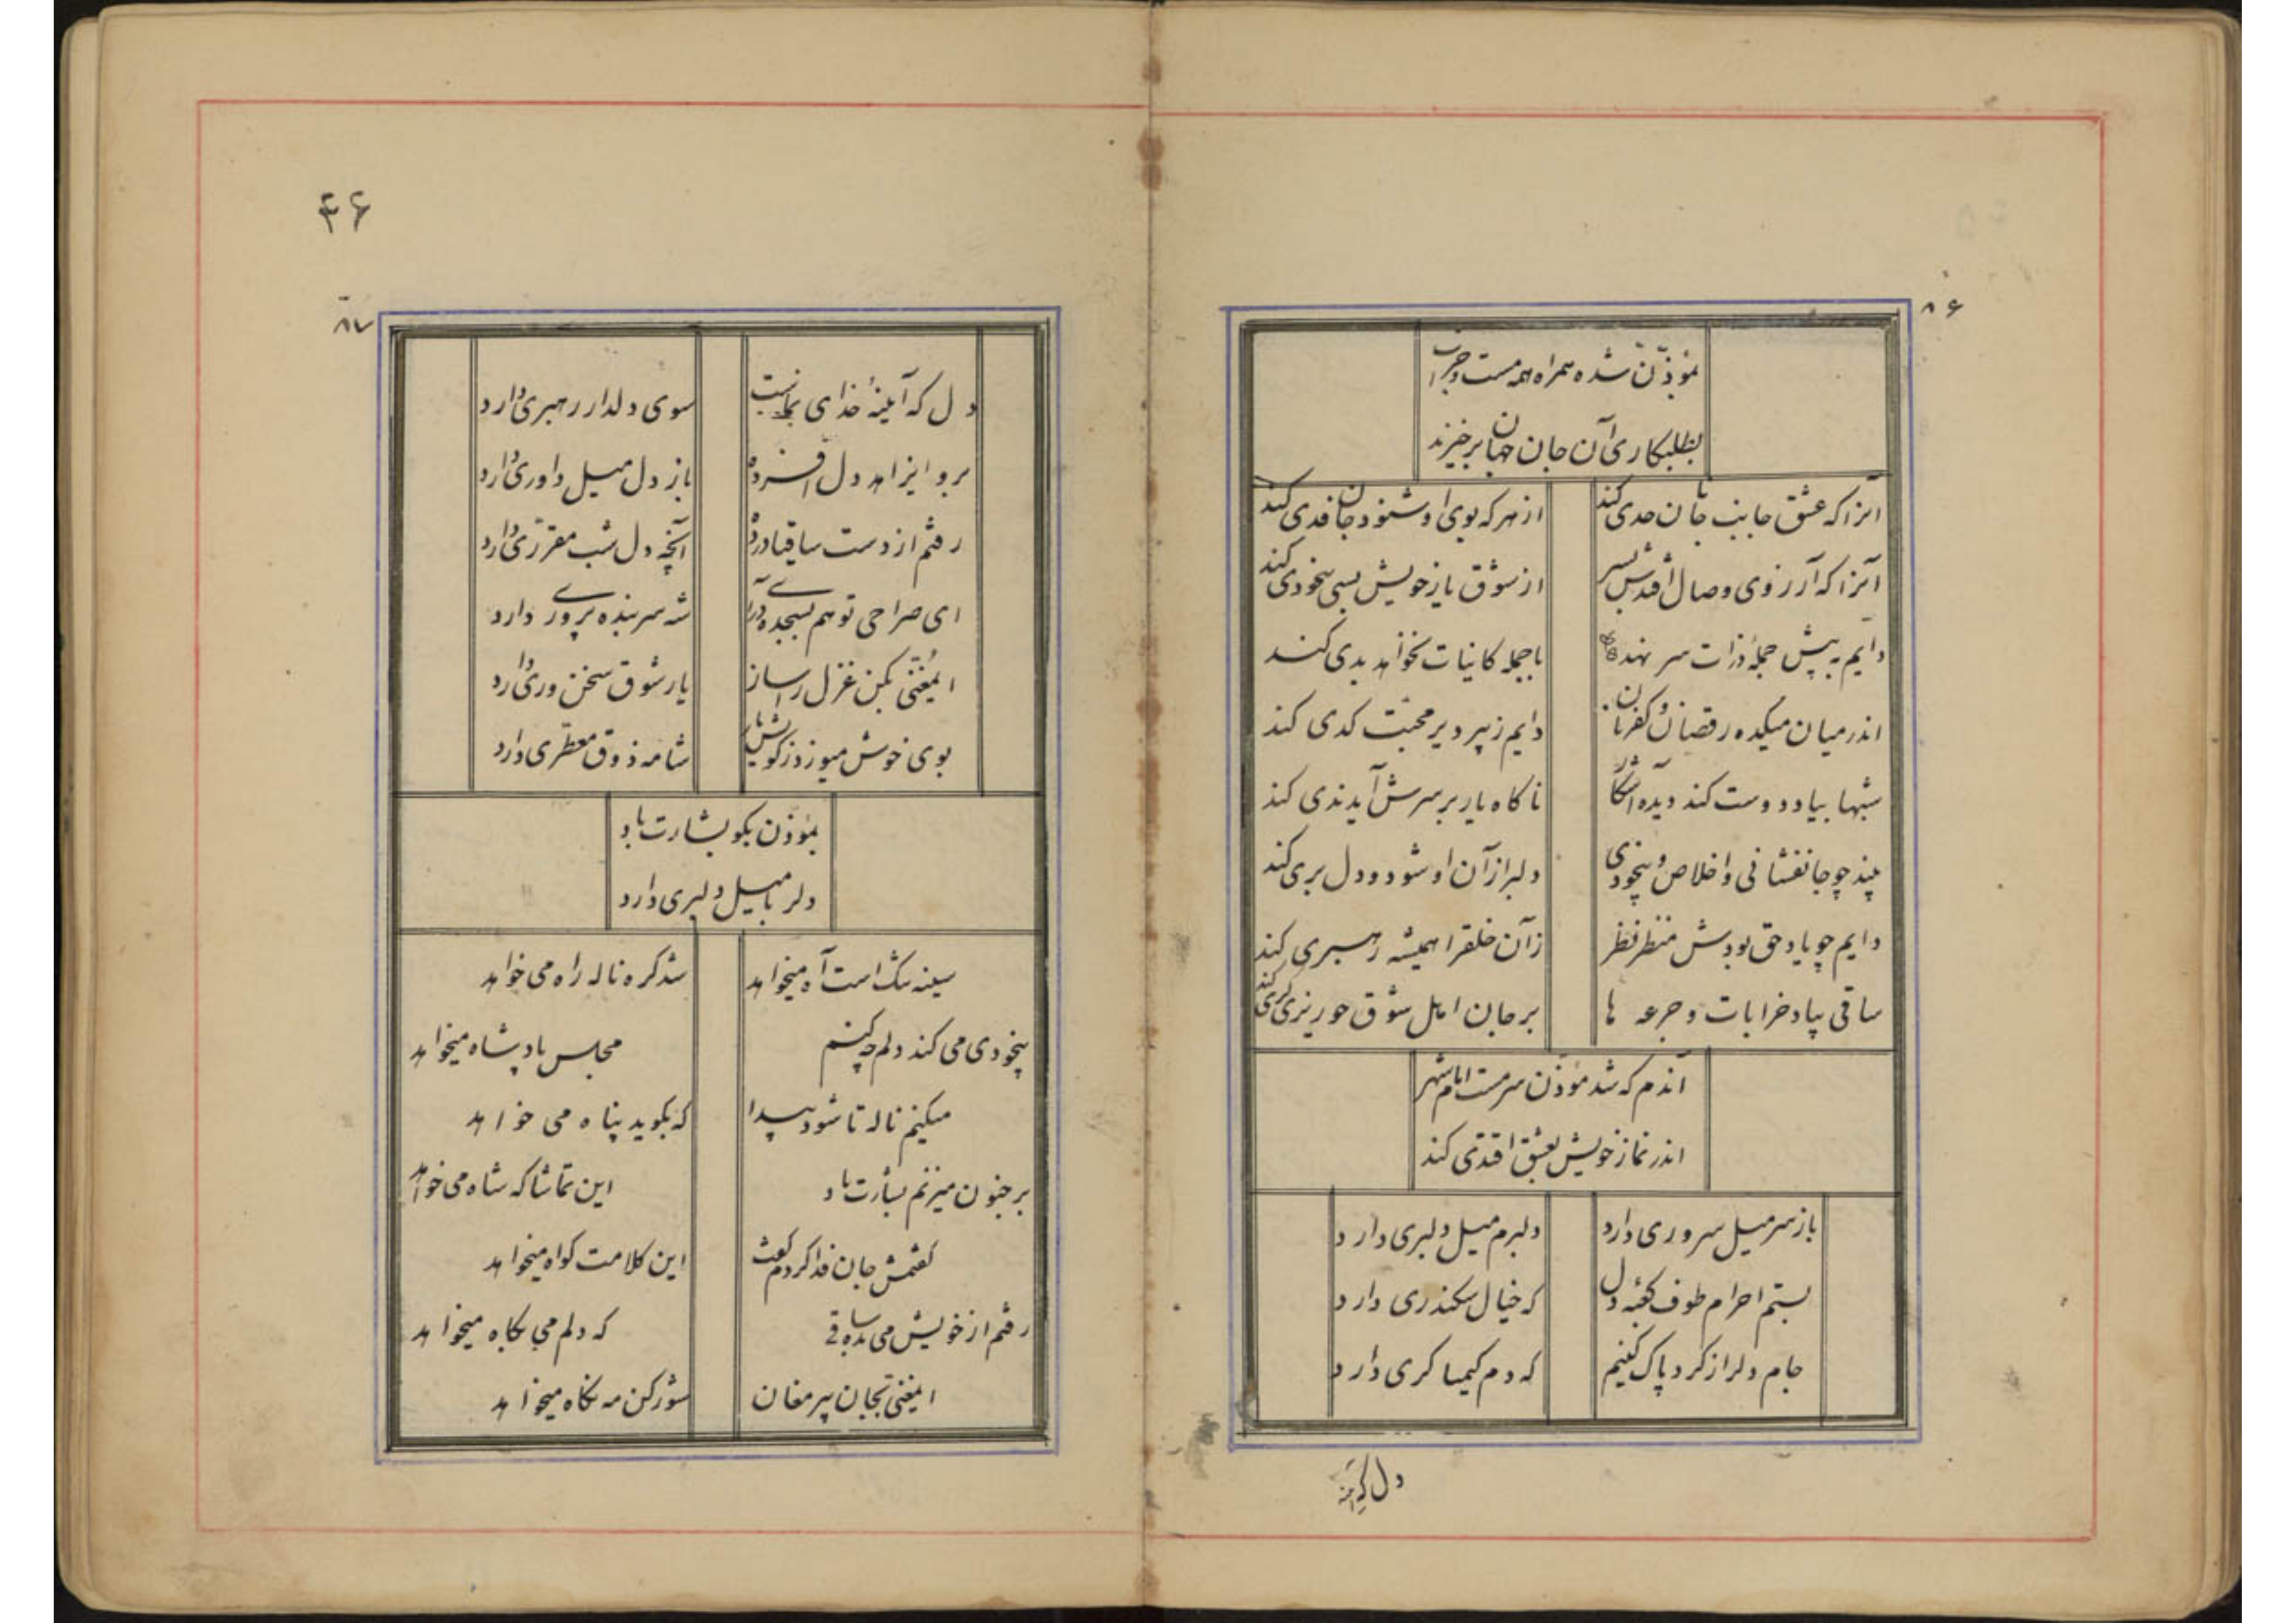 ۸۶
بمؤذّن شده همراه همه مست و خراب
بطلبکاری آن جان جهان برخیزند
آنرا که عشق جانب جانان حدی کند
از هر که بوی او شنود جان فدی کند
آنرا که آرزوی وصال اقدس بسر
از شوق یار خویش بسی بیخودی کند
دایم به پیش جملهٔ ذرات سر نهد
با جمله کاینات نخواهد بدی کند
اندر میان میکده رقصان و کفرنان
دایم ز پیر دیر محبّت کدی کند
شبها بیاد دوست کند دیده آشکار
ناکاه یار بر سرش آید ندی کند
بیند چو جانفشانی و اخلاص و بیخودی
دلبر از آن او شود و دل بری کند
دایم چو یاد حق بودش منظر نظر
زآن خلقرا همیشه رهبری کند
ساقی بیاد خرابات و جرعه ها
بر جان اهل شوق خوریزی کری کند
آندم که شد مؤذن سرمست امام شهر
اندر نماز خویش بعشق اقتدی کند
باز سر میل سروری دارد
دلبرم میل دلبری دارد
بستم احرام طوف کعبه دل
که خیال سکندری دارد
جام دلرا ز کرد پاک کنیم
که دم کیمیا کری دارد
دل که آینه
۴۶
۸۷
دل که آینهٔ خدای نماست
سوی دلدار رهبری دارد
برو ایزاهد دل افسرده
باز دل میل داوری دارد
رفتم از دست ساقیا در ده
آنچه دل شب مقرّری دارد
ای صراحی تو هم بسجده درآ
شه سر بنده پروری دارد
ایمغنّی بکن غزل را ساز
یار شوق سخن وری دارد
بوی خوش میوزد ز کوی نیاز
شامه ذوق معطّری دارد
بمؤذن بکو بشارت باد
دلربا میل دلبری دارد
سینه تنک است آه میخواهد
شد کره ناله راه می خواهد
بیخودی می کند دلم چکنم
مجلس پادشاه میخواهد
میکنم ناله تا شود پیدا
که بکوید پناه می خواهد
بر جنون میزنم بشارت باد
این تماشا که شاه می خواهد
کفتمش جان فدا کردم کفت
این کلامت کواه میخواهد
رفتم از خویش می بده ساقی
که دلم می بکاه میخواهد
ایمغنی بجان پیر مغان
شور کن مه نکاه میخواهد